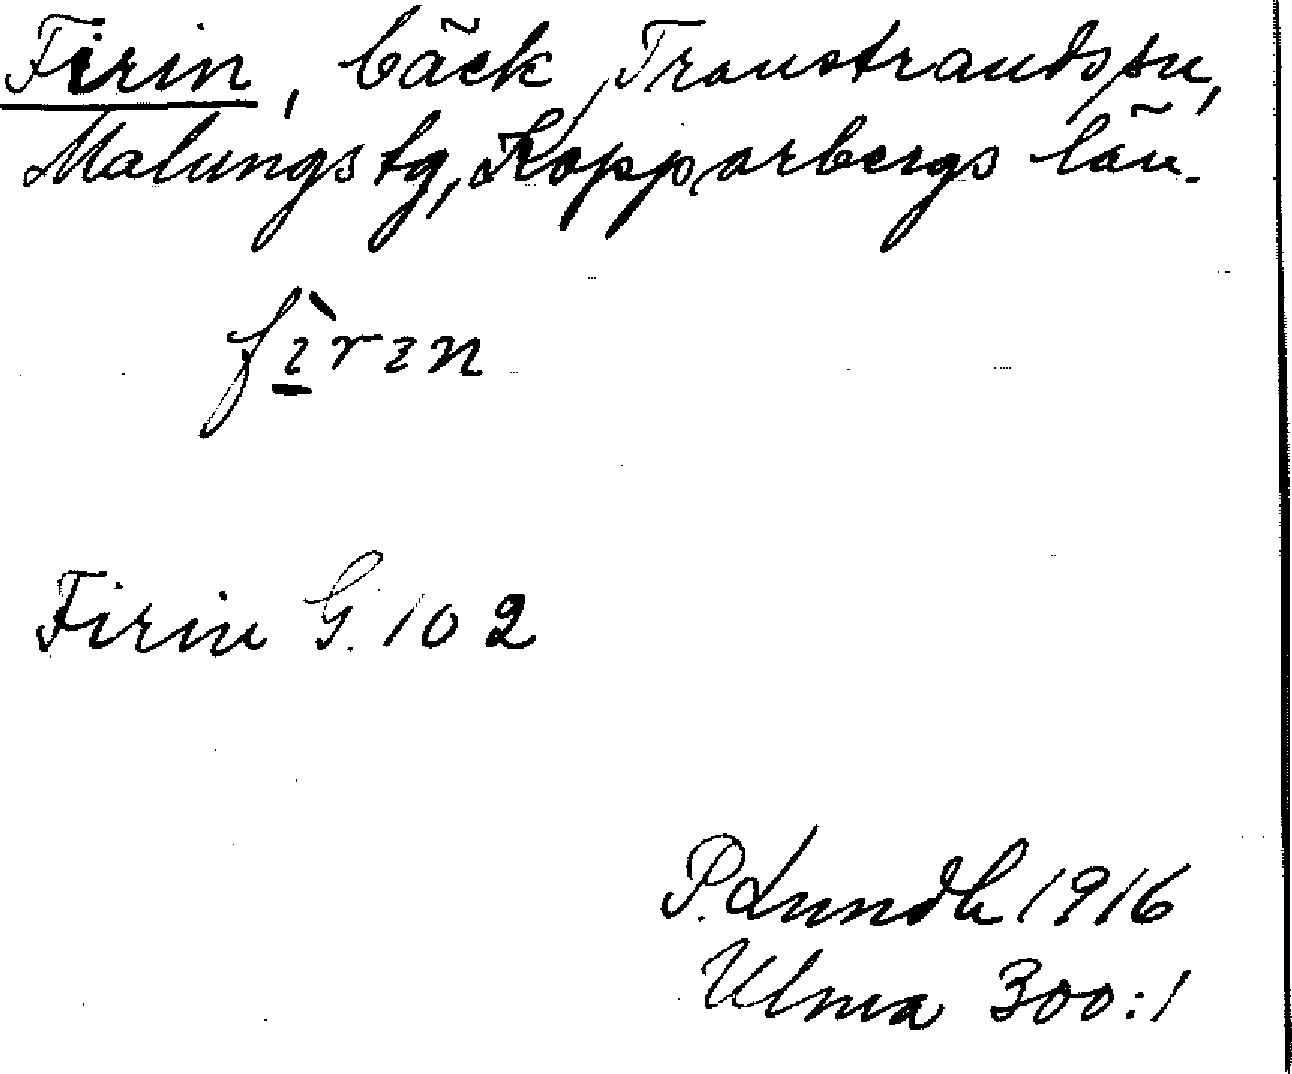 Firin, bäck, Transtrands sn,
Malungs tg, Kopparbergs län.
fìrın
Firin G. 102
P. Lundh 1916
Ulma 300:1